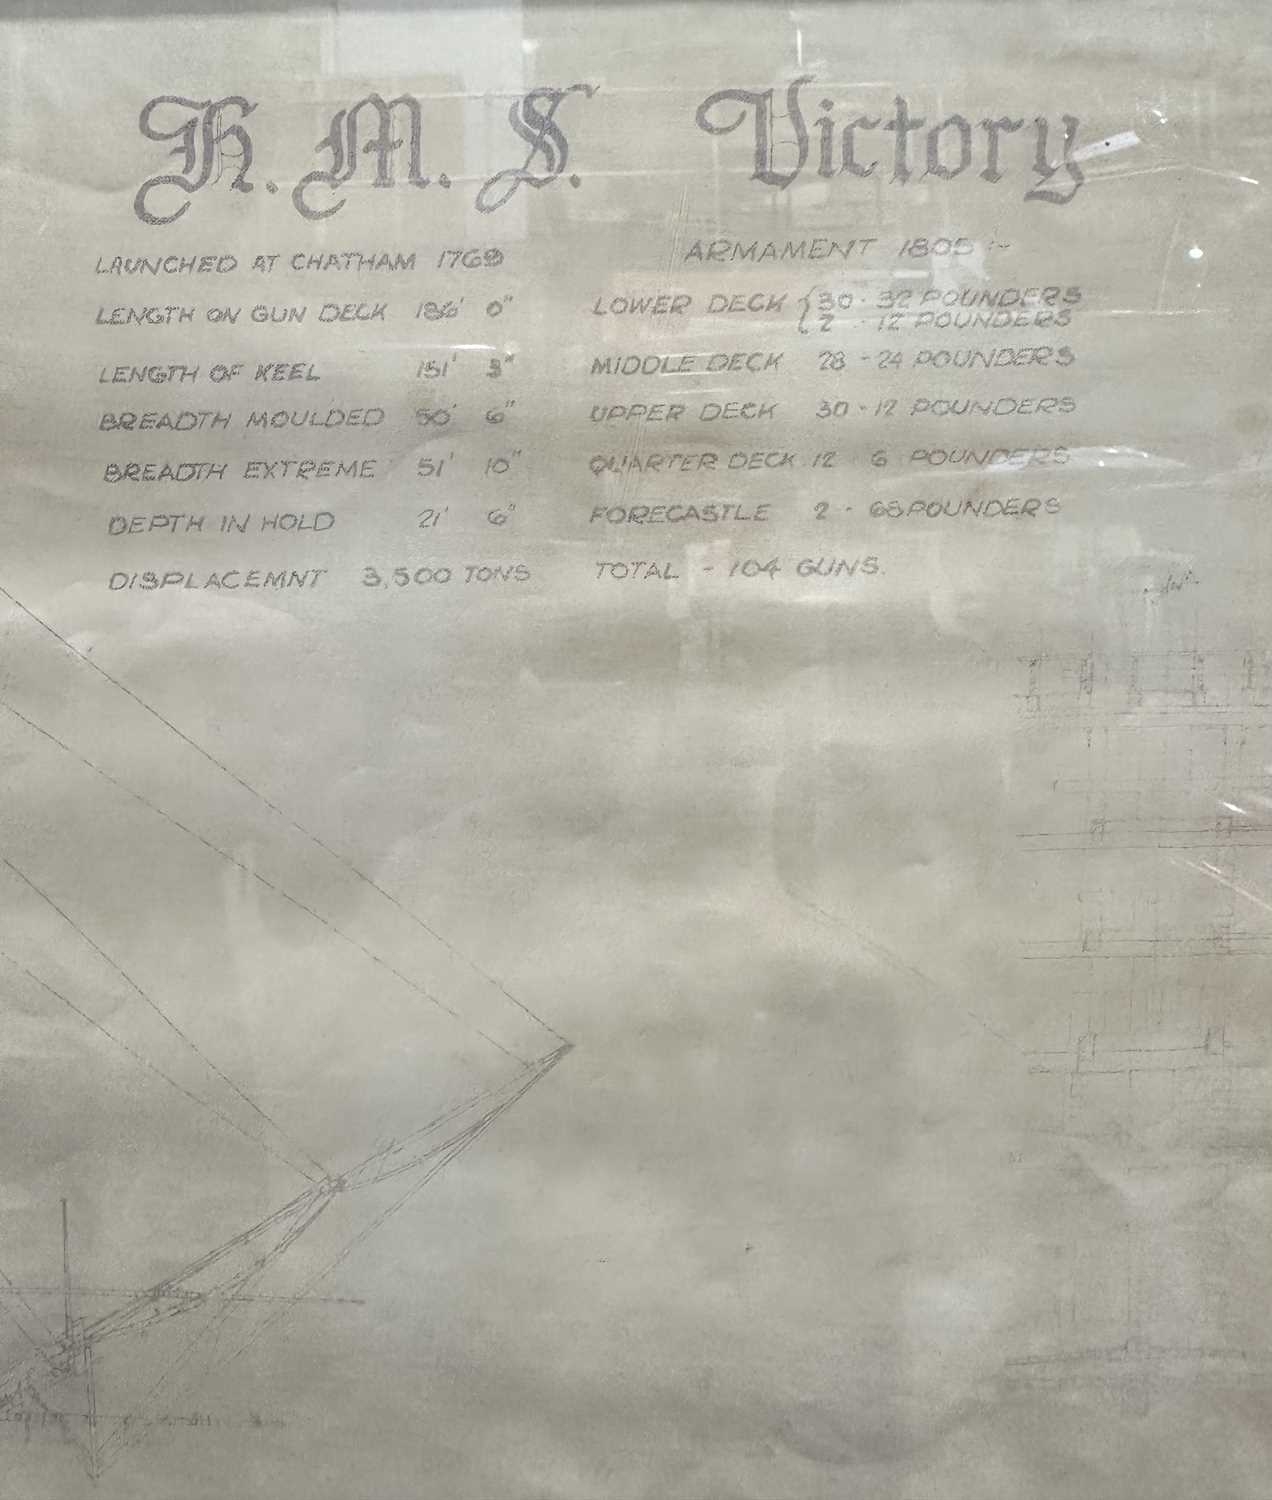 H. M. S. Victory
LAUNCHED AT CHATHAM 1769
LENGTH ON GUN DECK 186' 0"
LENGTH OF KEEL 151' 3"
BREADTH MOULDED 50' 6"
BREADTH EXTREME 51' 10"
DEPTH IN HOLD 21' 6"
DISPLACEMNT 3,500 TONS
ARMAMENT 1805 :-
LOWER DECK { 30 - 32 POUNDERS
2 - 12 POUNDERS
MIDDLE DECK 28 - 24 POUNDERS
UPPER DECK 30 - 12 POUNDERS
QUARTER DECK 12 - 6 POUNDERS
FORECASTLE 2 - 68 POUNDERS
TOTAL - 104 GUNS.